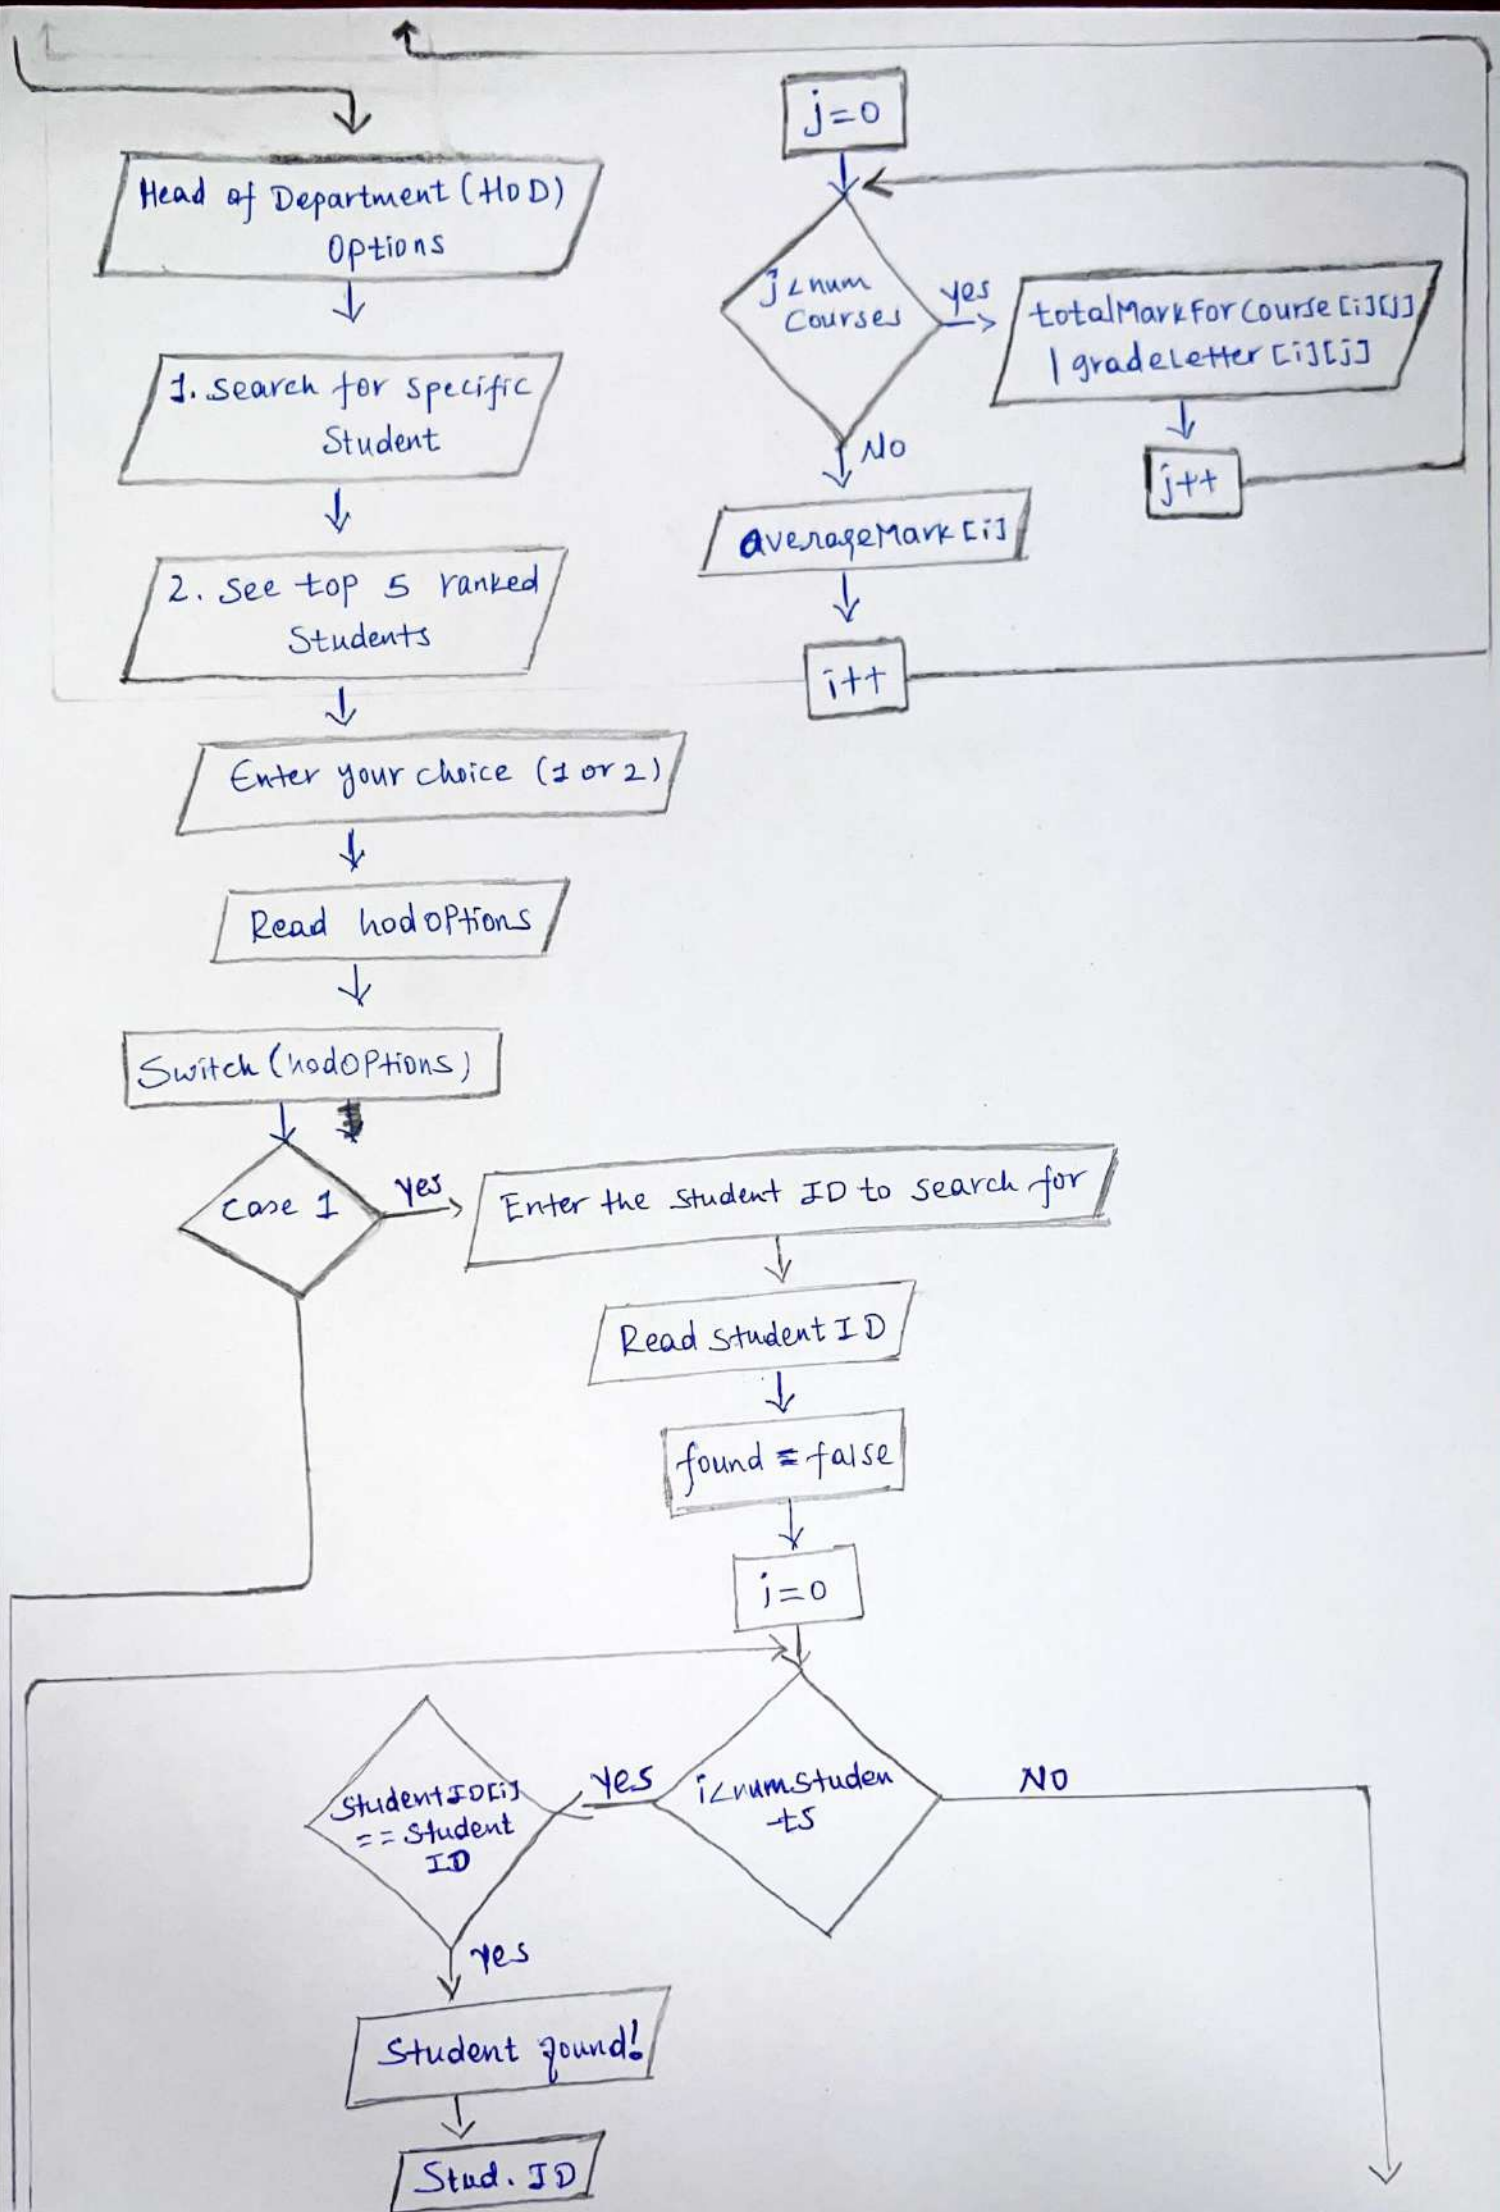 Head of Department (HOD)
Options
1. Search for specific
Student
2. See top 5 ranked
Students
Enter your choice (1 or 2)
Read hodoptions
Switch (hodoptions)
Case 1
yes
Enter the student ID to search for
Read student ID
found = false
j=0
i<numStuden
-ts
yes
NO
StudentID[i]
== Student
ID
yes
Student found!
Stud. ID
j=0
j<num
Courses
yes
totalMarkForCourse[i][j]
| gradeLetter[i][j]
j++
No
averageMark[i]
i++